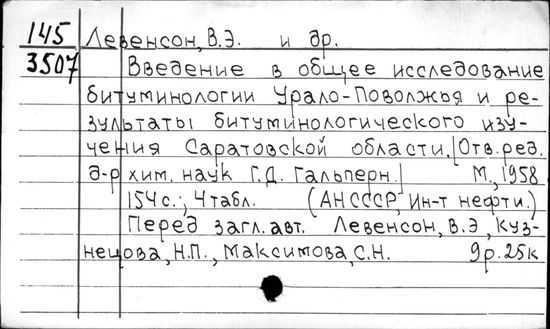 145 Левенсон, В.Э. и др.
3507 Введение в общее исследование
битуминологии Урало-Поволжья и ре-
зультаты битуминологического изу-
чения Саратовской области. [Отв. ред.
д-р хим. наук Г.Д. Гальперн.] М., 1958
154 с.; 4 табл. (АН СССР, Ин-т нефти.)
Перед загл. авт. Левенсон, В.Э, Куз-
нецова, Н.П., Максимова, С.Н. 9р. 25к